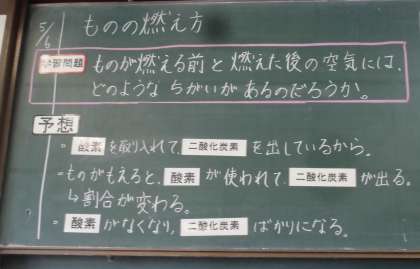 5/6 ものの燃え方
学習問題 ものが燃える前と燃えた後の空気には、
どのようなちがいがあるのだろうか。
予想
。酸素を取り入れて、二酸化炭素を出しているから。
・ものがもえると、酸素が使われて、二酸化炭素が出る。
↳割合が変わる。
。酸素がなくなり、二酸化炭素ばかりになる。